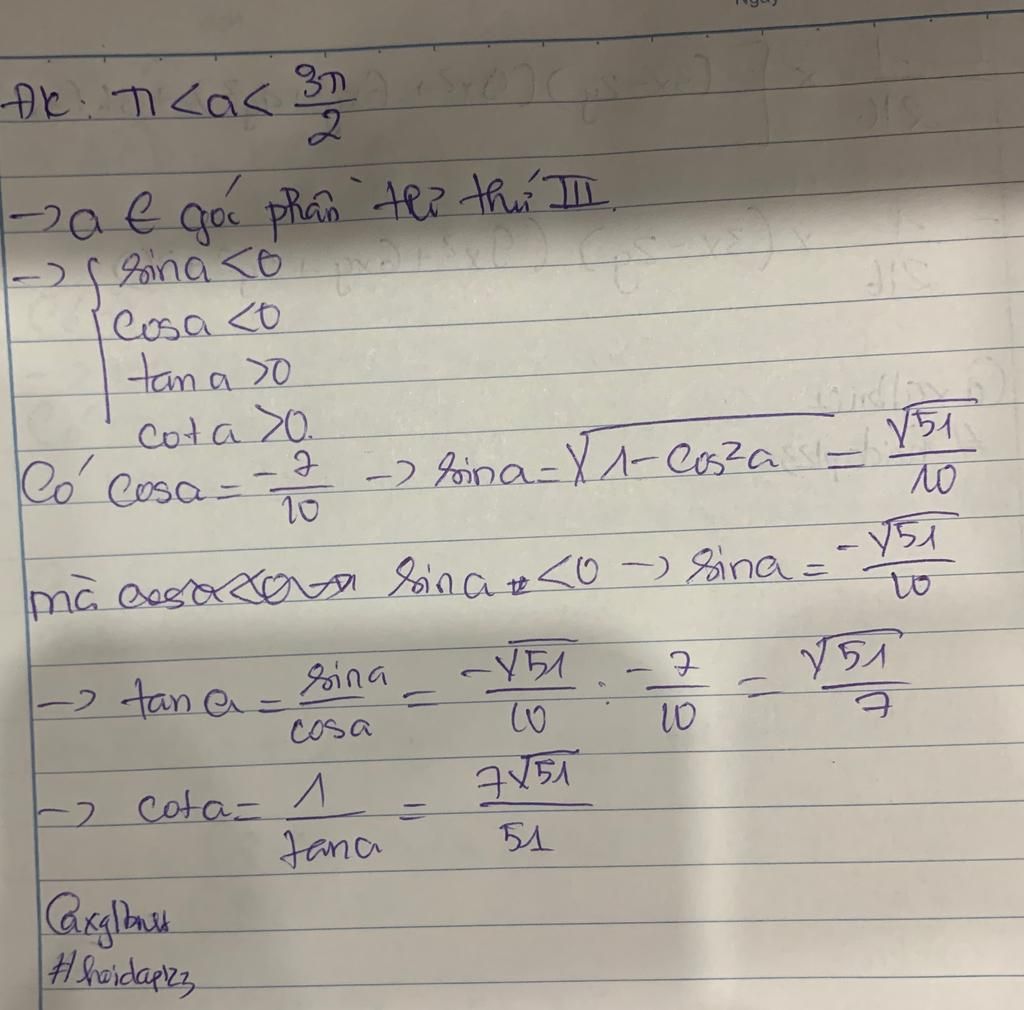 ĐK: π < a < 3π/2
→ a ∈ góc phần tư thứ III.
→ { sin a < 0
cos a < 0
tan a > 0
cot a > 0.
Có cos a = -7/10 → sin a = √(1 - cos²a) = √51/10
mà sin a < 0 → sin a = -√51/10
→ tan a = sin a/cos a = -√51/10 : -7/10 = √51/7
→ cot a = 1/tan a = 7√51/51
#hoidap123